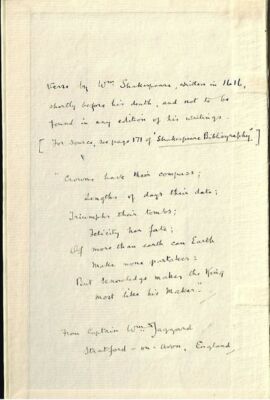 Verse by Wm Shakespeare, written in 1616,
shortly before his death, and not to be
found in any edition of his writings.
[For source, see page 171 of "Shakespeare Bibliography"]
"Crowns have their compass;
Lengths of days their date;
Triumphs their tombs;
Felicity her fate;
Of more than earth can Earth
Make none partaker:
But Knowledge makes the King
most like his Maker."
From Captain Wm Jaggard
Stratford-on-Avon, England